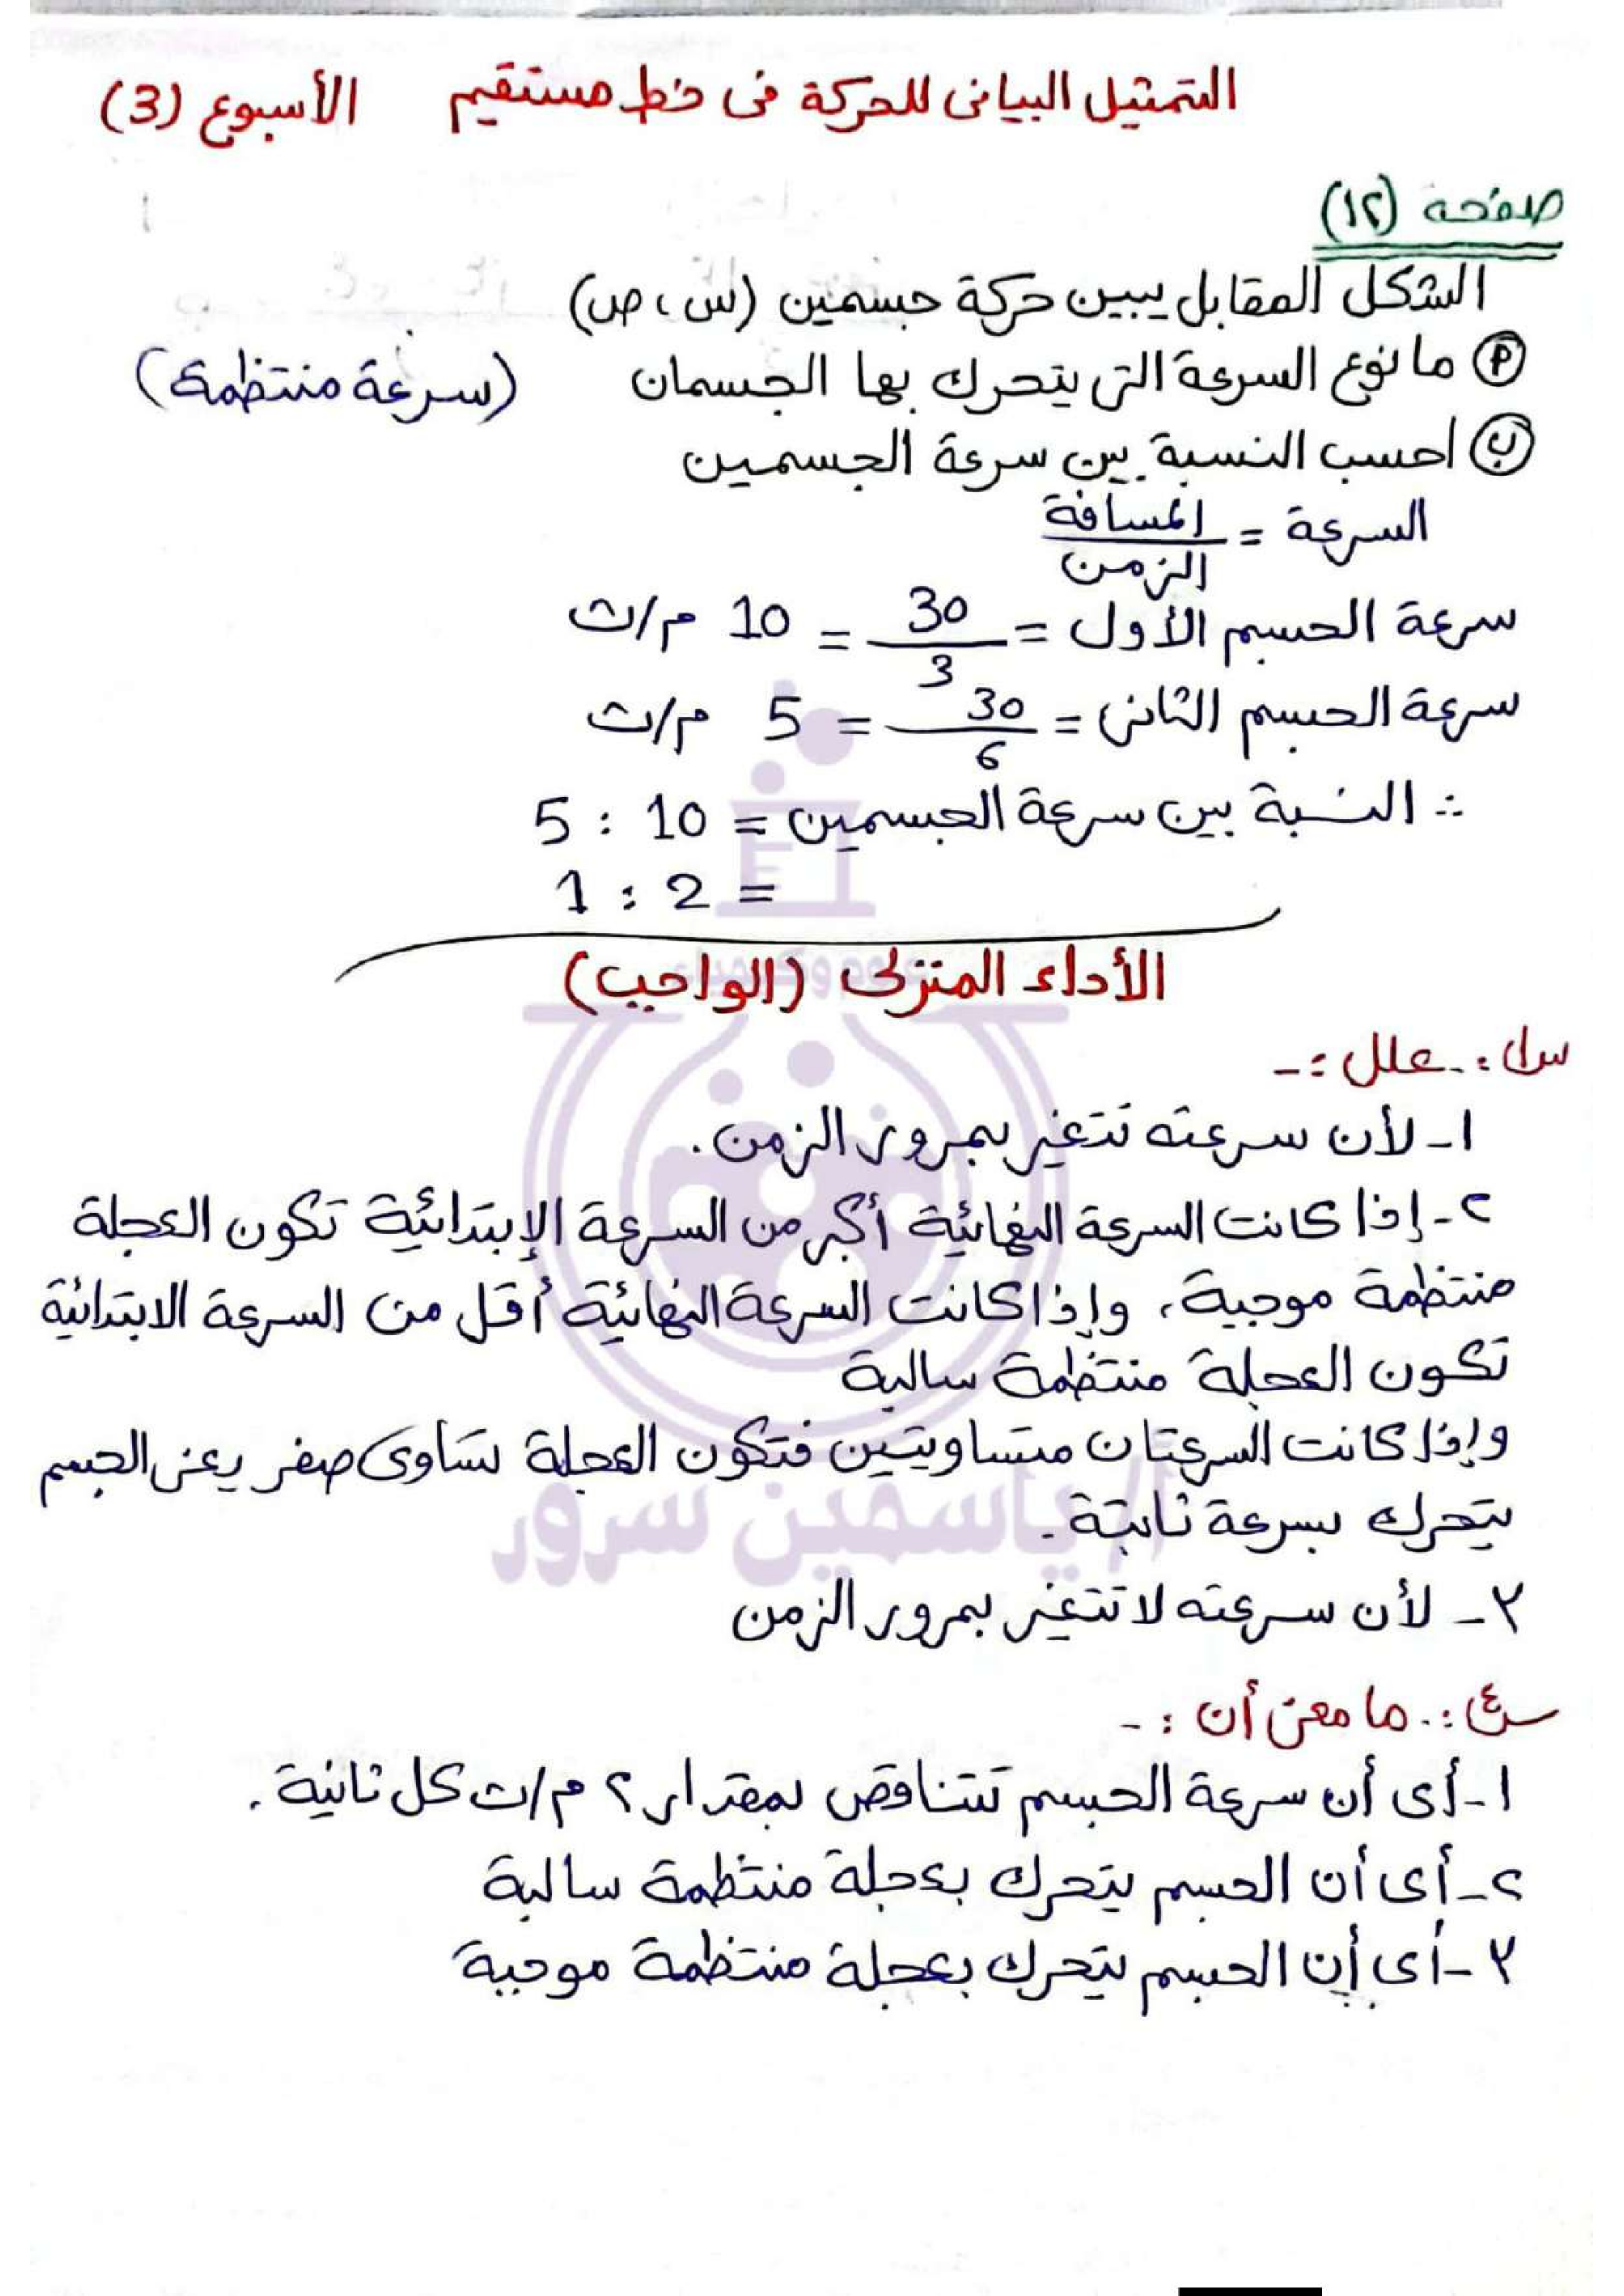 التمثيل البيانى للحركة فى خط مستقيم الأسبوع (3)
صفحة (١٢)
الشكل المقابل يبين حركة جسمين (س ، ص)
(أ) ما نوع السرعة التى يتحرك بها الجسمان (سرعة منتظمة)
(ب) احسب النسبة بين سرعة الجسمين
السرعة = المسافة / الزمن
سرعة الجسم الأول = 30 / 3 = 10 م/ث
سرعة الجسم الثانى = 30 / 6 = 5 م/ث
∴ النسبة بين سرعة الجسمين = 10 : 5
= 2 : 1
الأداء المنزلى (الواجب)
س١:- علل :-
١- لأن سرعته تتغير بمرور الزمن.
٢- إذا كانت السرعة النهائية أكبر من السرعة الإبتدائية تكون العجلة
منتظمة موجبة، وإذا كانت السرعة النهائية أقل من السرعة الابتدائية
تكون العجلة منتظمة سالبة
وإذا كانت السرعتان متساويتين فتكون العجلة تساوى صفر يعنى الجسم
يتحرك بسرعة ثابتة.
أ/ ياسمين سرور
٣- لأن سرعته لا تتغير بمرور الزمن
س٤:- ما معنى أن :-
١- أى أن سرعة الجسم تتناقص بمقدار ٢ م/ث كل ثانية.
٢- أى أن الجسم يتحرك بعجلة منتظمة سالبة
٣- أى أن الجسم يتحرك بعجلة منتظمة موجبة